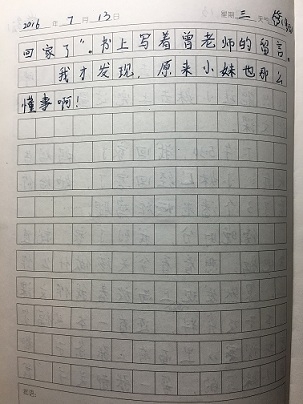 2016 年 7 月 13 日 星期 三 天气
回家了”。书上写着曾老师的留言。
我才发现，原来小妹也那么
懂事啊！